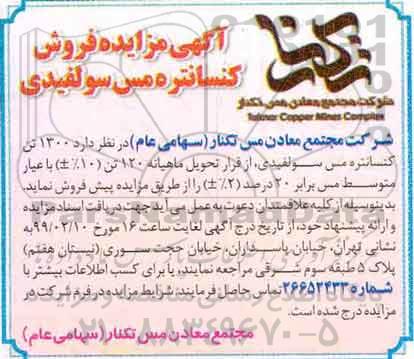 آگهی مزایده فروش
کنسانتره مس سولفیدی
شرکت مجتمع معادن مس تکنار
Taknar Copper Mines Complex
شرکت مجتمع معادن مس تکنار (سهامی عام) در نظر دارد ۱۳۰۰ تن
کنسانتره مس سولفیدی، از قرار تحویل ماهیانه ۱۲۰ تن (۱۰٪ ±) با عیار
متوسط مس برابر ۲۰ درصد (۲٪ ±) را از طریق مزایده پیش فروش نماید.
بدینوسیله از کلیه علاقمندان دعوت به عمل می آید جهت دریافت اسناد مزایده
و ارائه پیشنهاد خود، از تاریخ درج آگهی لغایت ساعت ۱۶ مورخ ۹۹/۰۲/۱۰ به
نشانی تهران، خیابان پاسداران، خیابان حجت سوری (نیستان هفتم)
پلاک ۵ طبقه سوم شرقی مراجعه نمایند، یا برای کسب اطلاعات بیشتر با
شماره ۲۶۶۵۲۴۳۳ تماس حاصل فرمایند. شرایط مزایده در فرم شرکت در
مزایده درج شده است.
مجتمع معادن مس تکنار (سهامی عام)
۰۲۱-۸۸۳۴۹۶۷۰-۵